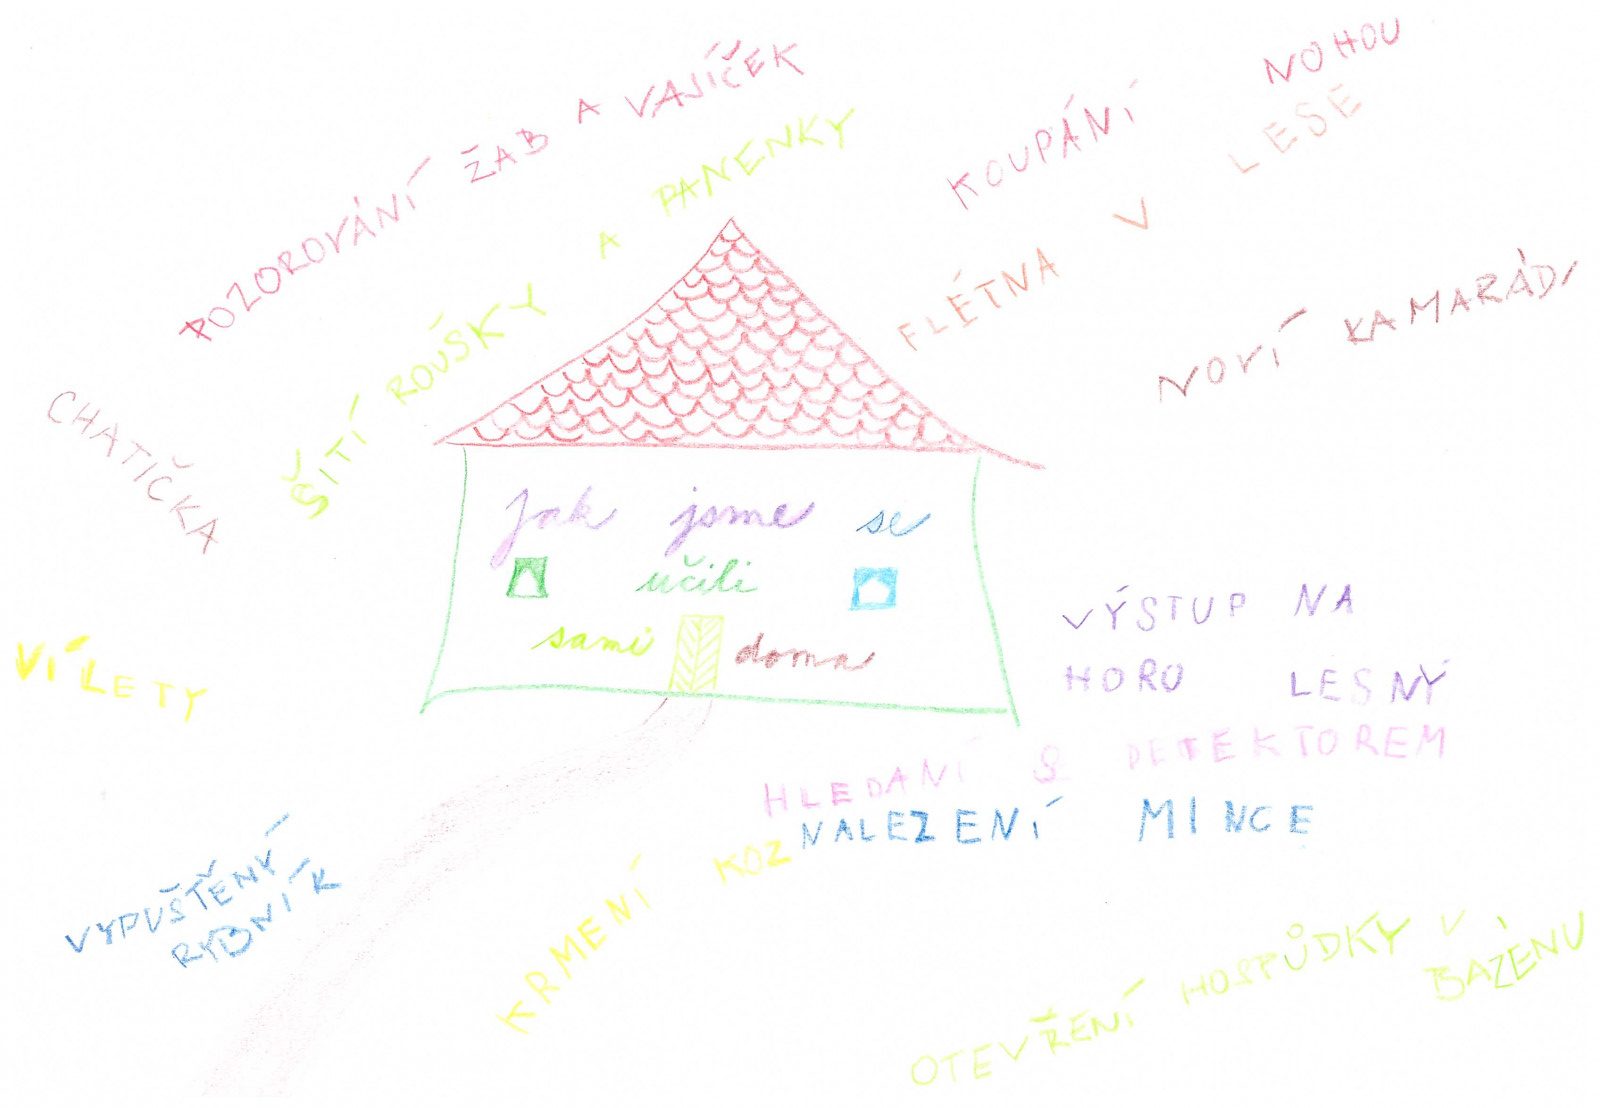 POZOROVÁNÍ ŽAB A VAJÍČEK
ŠITÍ ROUŠKY A PANENKY
KOUPÁNÍ NOHOU
FLÉTNA V LESE
NOVÍ KAMARÁDI
CHATIČKA
Jak jsme se
učili
sami doma
VÍLETY
VÝSTUP NA
HORU LESNÝ
HLEDANÍ S DETEKTOREM
NALEZENÍ MINCE
VYPUŠTĚNÝ
RYBNÍK
KRMENÍ KOZ
OTEVŘENÍ HOSPŮDKY V
BAZÉNU